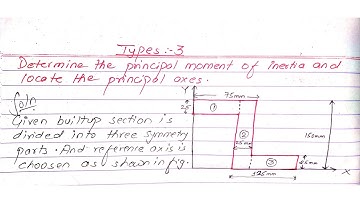 Types:-3
Determine the principal moment of inertia and
locate the principal axes.
Soln
Given builtup section is
divided into three symmetry
parts. And reference axis is
choosen as shown in fig.
Y
75mm
25
①
②
25mm
150mm
③
25mm
125mm
X